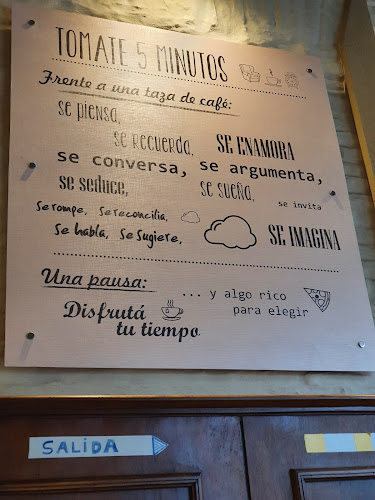 TOMATE 5 MINUTOS
Frente a una taza de café:
se piensa,
se recuerda, SE ENAMORA
se conversa, se argumenta,
se seduce, se sueña,
se invita
Se rompe, Se reconcilia,
Se habla, Se Sugiere, SE IMAGINA
Una pausa:
... y algo rico
para elegir
Disfrutá
tu tiempo
SALIDA